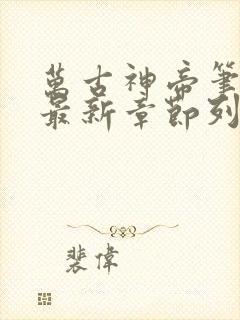 萬古神帝筆
最新章節列
裴偉